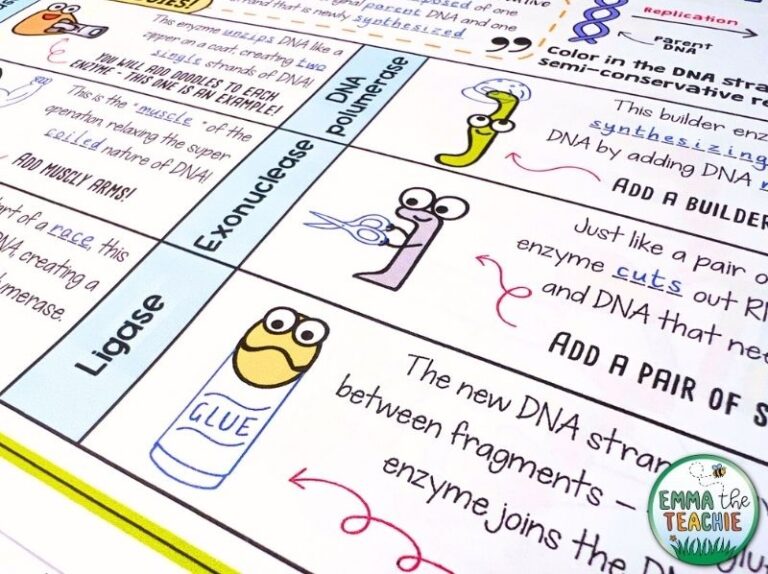 original parent DNA and one
strand that is newly synthesized
Replication
Parent
DNA
Color in the DNA
semi-conservative
This enzyme unzips DNA like a
zipper on a coat, creating two
single strands of DNA!
YOU WILL ADD DOODLES TO EACH
ENZYME - THIS ONE IS AN EXAMPLE!
This is the "muscle" of the
operation, relaxing the super
coiled nature of DNA!
ADD MUSCLY ARMS!
of a race, this
DNA, creating a
DNA
polymerase
This builder
synthesizing
DNA by adding DNA
ADD A BUILDER
Exonuclease
Just like a pair
enzyme cuts out
and DNA that
ADD A PAIR OF
Ligase
GLUE
The new DNA
between fragments –
enzyme joins the
EMMA the
TEACHIE